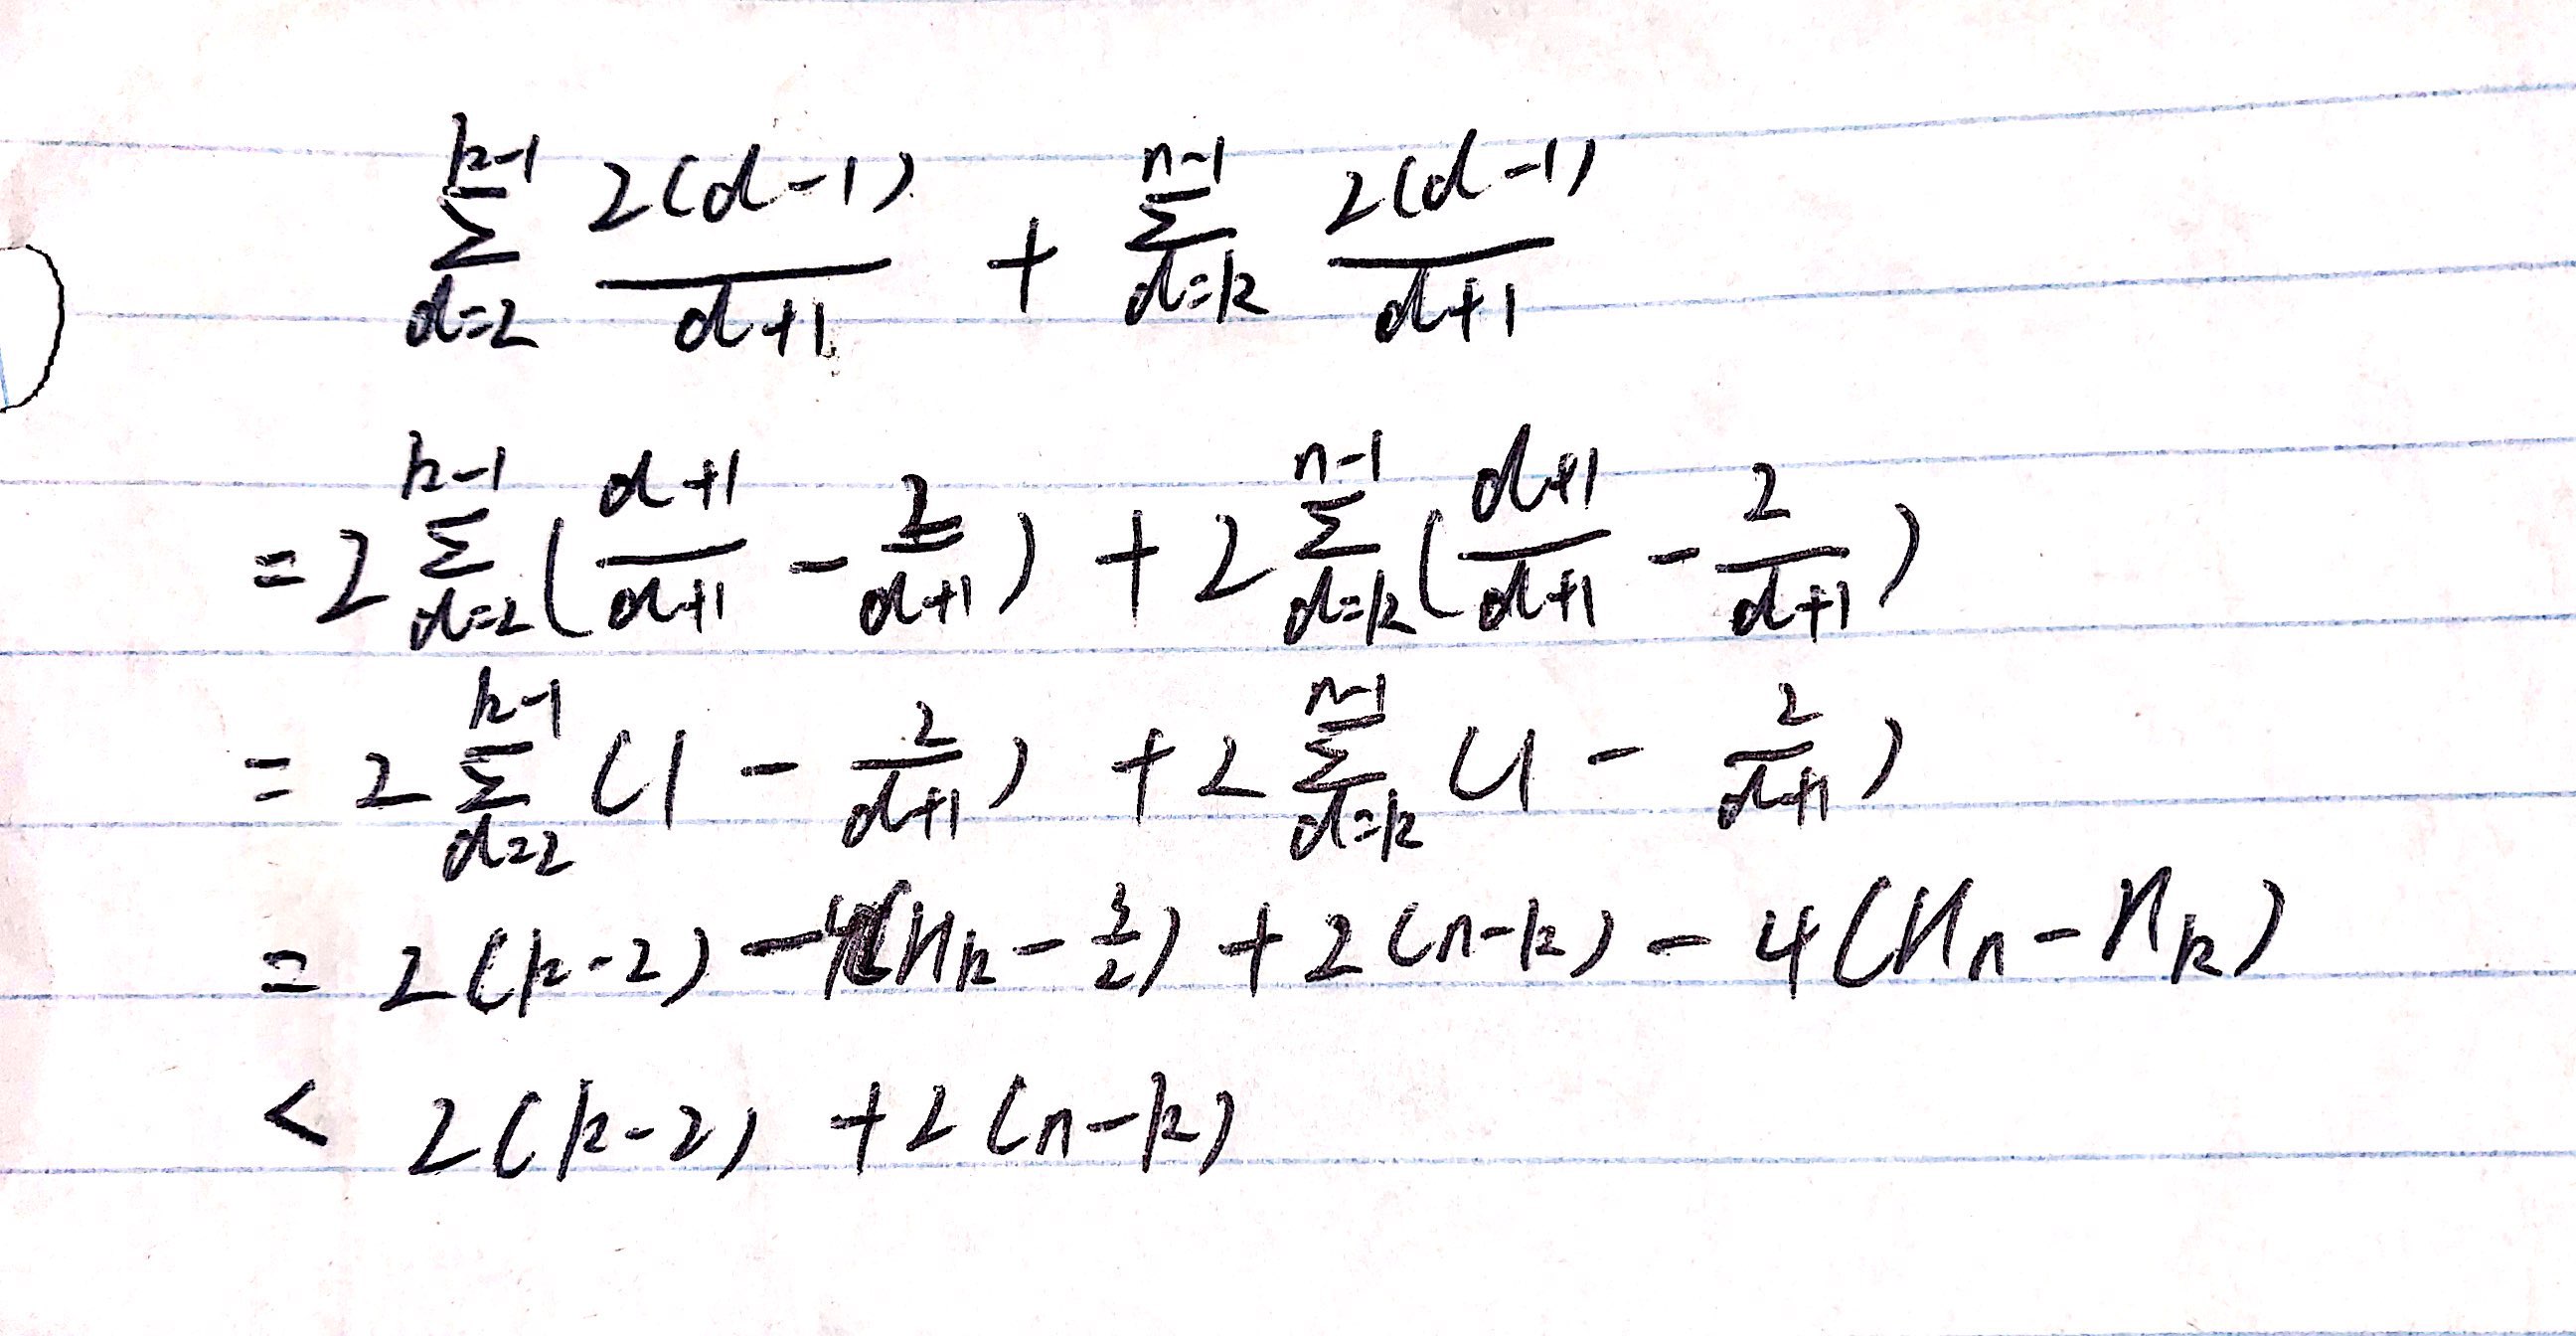 \sum_{d=2}^{k-1} \frac{2(d-1)}{d+1} + \sum_{d=k}^{n-1} \frac{2(d-1)}{d+1}
= 2 \sum_{d=2}^{k-1} ( \frac{d+1}{d+1} - \frac{2}{d+1} ) + 2 \sum_{d=k}^{n-1} ( \frac{d+1}{d+1} - \frac{2}{d+1} )
= 2 \sum_{d=2}^{k-1} (1 - \frac{2}{d+1}) + 2 \sum_{d=k}^{n-1} (1 - \frac{2}{d+1})
= 2(k-2) - 4(H_k - \frac{3}{2}) + 2(n-k) - 4(H_n - H_k)
< 2(k-2) + 2(n-k)